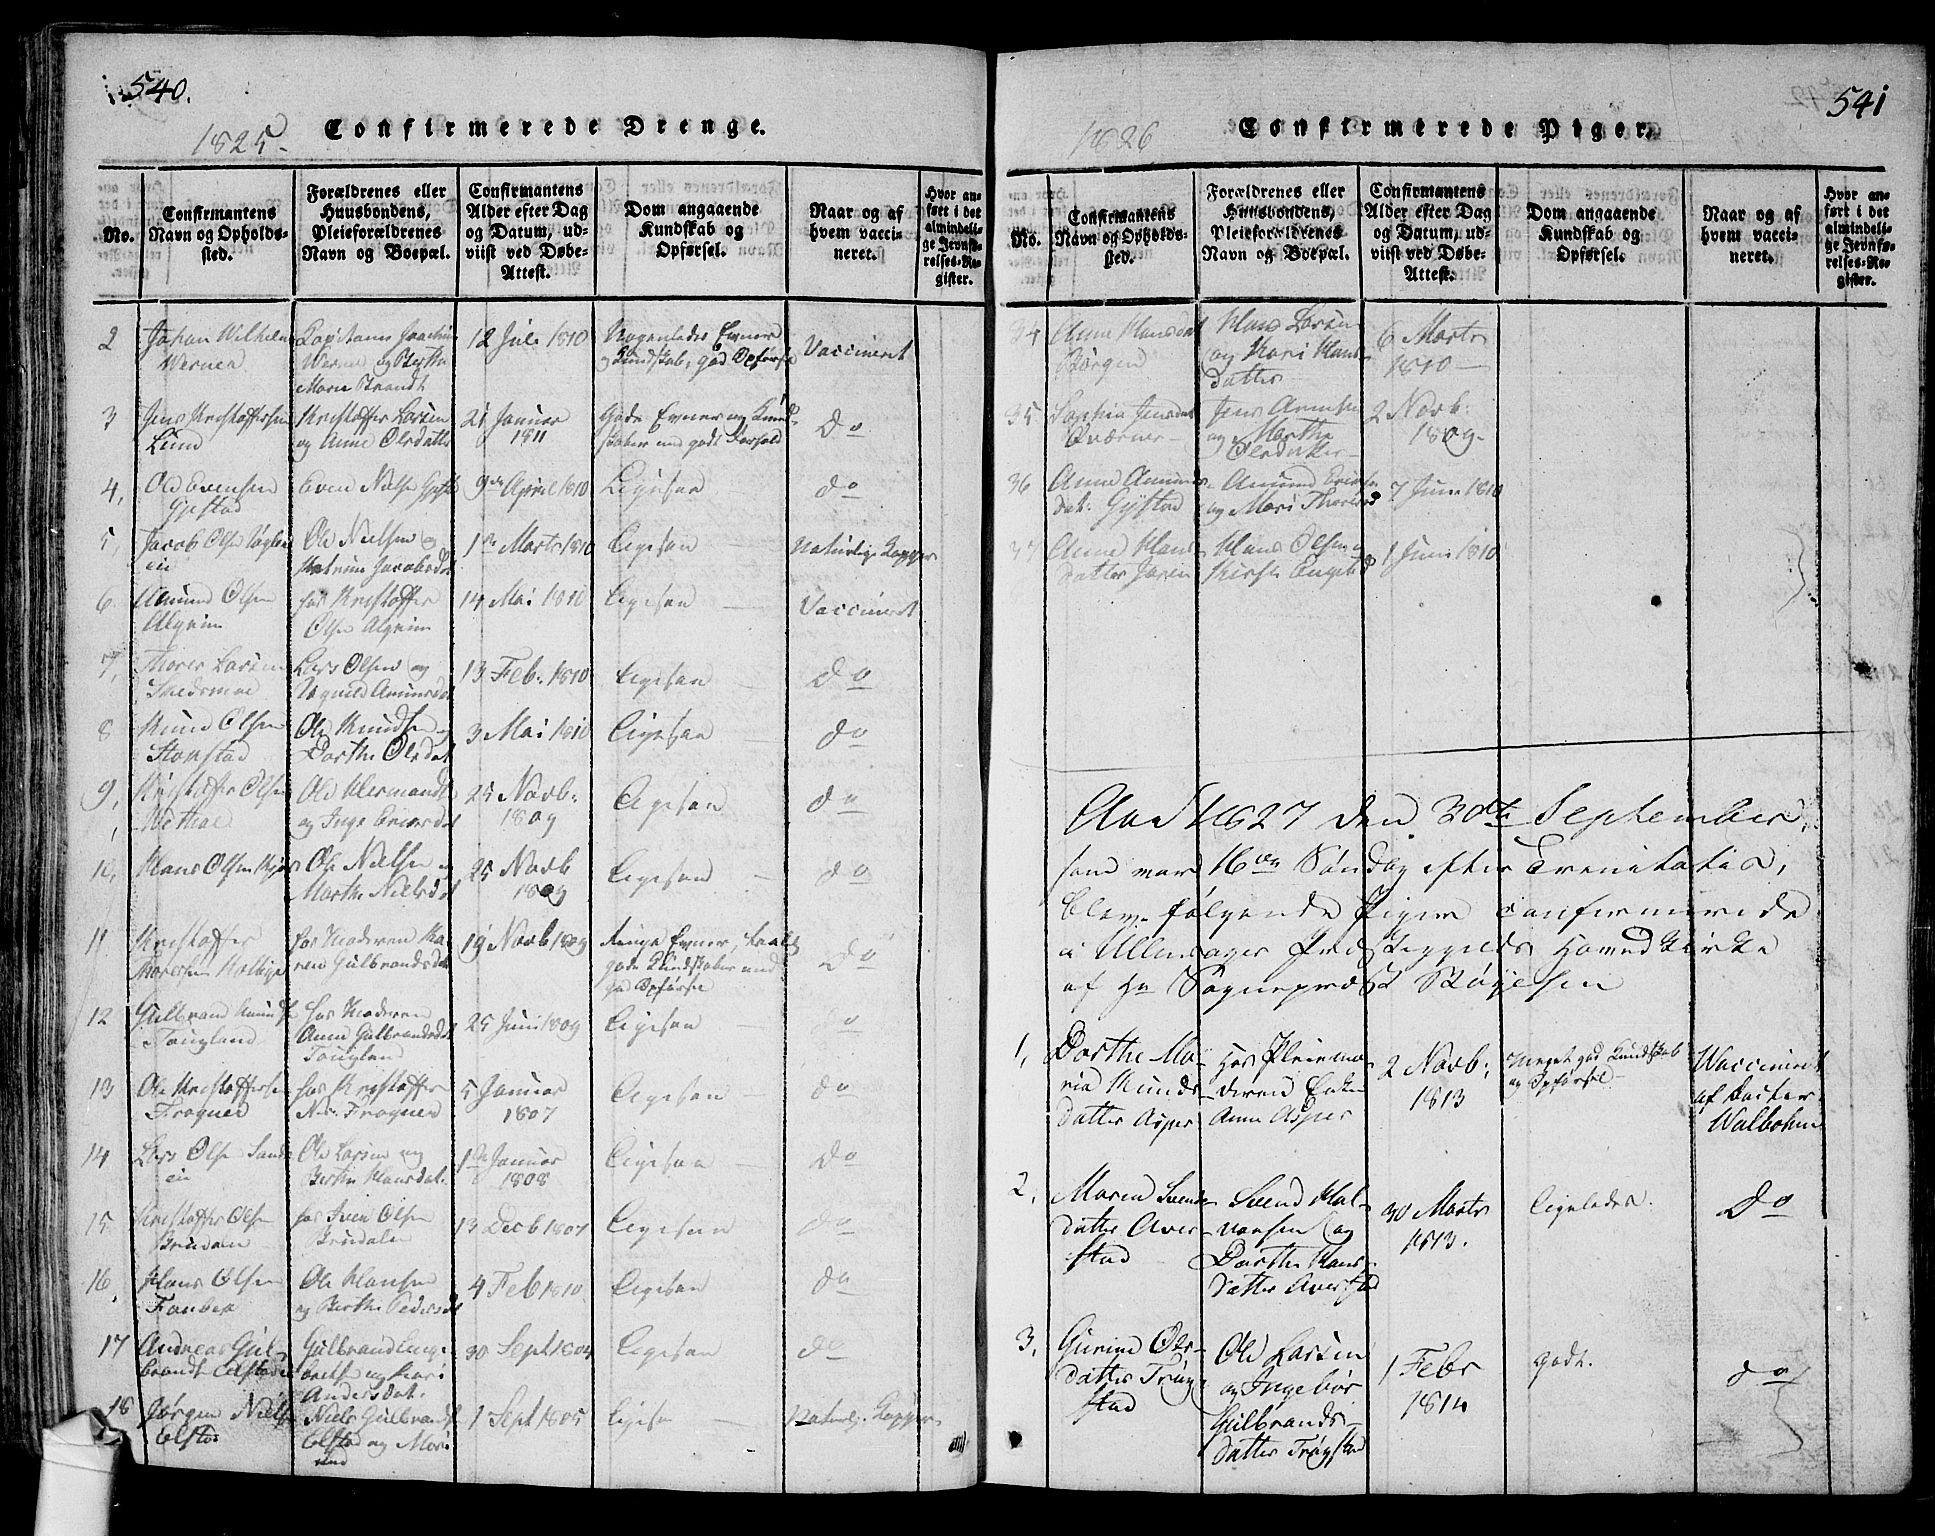 540.
1825.
Confirmerede Drenge.
No.
Confirmantens
Navn og Opholds-
sted.
Forældrenes eller
Huusbondens,
Pleieforældrenes
Navn og Boepæl.
Confirmantens
Alder efter Dag
og Datum, ud-
viist ved Døbe-
Attest.
Dom angaaende
Kundskab og
Opførsel.
Naar og af
hvem vacci-
neret.
Hvor an-
ført i det
almindeli-
ge Jevnfø-
relses-Re-
gister.
2
Johan Wilhelm
Werner
Capitaine Joachim
Werner og
Maria Brandt
12 Juli 1810
Nogenledes Evner
og Kundskab, god Opførsel
Vaccineret
3
Jens Kristoffersen
Lund
Kristoffer Larsen
og Anne Olsdatter
21 Januar
1811
Gode Evner og Kund-
skaber med godt Forhold
do
4,
Ole Evensen
Gystad
Even Nielsen Gystad
9de April 1810
Ligesaa
do
5,
Jacob Olsen
Ole Nielsen og
Katrine Jacobsdat
1ste Marts 1810
Ligesaa
Naturlige Kopper
6
Amund Olsen
Algrim
hos Kristoffer
Olsen Algrim
14 Mai 1810
Ligesaa
Vaccineret
7,
Thorer Larsen
Skedsmoe
Lars Olsen og
Ragnild Amundsdat
13 Feb. 1810
Ligesaa
do
8
Knud Olsen
Ole Knudsen
Dorthe Olsdat
3 Mai 1810
Ligesaa
do
9,
Kristoffer Olsen
Ole Hermands
og Inge Ericsdat
25 Novb:
1809
Ligesaa
do
10,
Hans Olsen
Ole Nielsen og
Marthe Nielsdat
25 Novb
1809
Ligesaa
do
11
Kristoffer
hos Moderen Ka-
ren Gulbrandsdat
19 Novb 1809
Ringe Evner, taalig
gode Kundskaber med
god Opførsel
do
12
Gulbrand Knudsen
Tougland
hos Moderen
Anne Gulbrandsdat
Tougland
25 Juni 1809
Ligesaa
do
13
Ole Kristoffersen
Frogner
hos Kristoffer
Frogner
5 Januar
1807
Ligesaa
do
14
Lars Olsen
Ole Larsen og
Berthe Hansdat.
1ste Januar
1808
Ligesaa
do
15
Kristoffer Olsen
hos Iver Olsen
13 Decb 1807
Ligesaa
do
16,
Hans Olsen
Ole Hansen
og Berthe Pedersdat
4 Feb 1810
Ligesaa
do
17
Andreas Gul-
brandt Elstad
Gulbrand Enge-
bretsen og Kari
Andersdat.
30 Sept 1804
Ligesaa
do
18
Jørgen Nielsen
Elstad
Niels Gulbrands
Elstad og Mari
1 Sept 1805
Ligesaa
Naturlj. Kopper
541
1826
Confirmerede Piger.
No.
Confirmantens
Navn og Opholds-
sted.
Forældrenes eller
Huusbondens,
Pleieforældrenes
Navn og Boepæl.
Confirmantens
Alder efter Dag
og Datum, ud-
viist ved Døbe-
Attest.
Dom angaaende
Kundskab og
Opførsel.
Naar og af
hvem vacci-
neret.
Hvor an-
ført i det
almindeli-
ge Jevnfø-
relses-Re-
gister.
34
Anne Hansdat
Borgen
Hans Larsen
og Kari Hans-
datter
6 Marts
1810
35
Sophia Jensdat
Qværner
Jens Arnesen
og Marthe
Olsdatter
2 Novb:
1809
36
Anne Amunds-
dat. Gystad
Amund Ericsen
og Mari
7 Juni 1810
37
Anne Hans-
datter
Hans Olsen og
Kirsti
1 Juni 1810
Aar 1827 den 30te September,
som var 16de Søndag efter Trenitatis,
blev følgende Piger confirmerede
i Ullensager Præstegields Hovedkirke
af Hr Sognepræst Røyesen
1,
Dorthe Ma-
ria Knuds-
datter Asper
Hos Pleiemo-
deren Enke
Anne Asper
2 Novb:
1813
Meget god Kundskab
og Opførsel
Vaccineret
af Koster
Walbohm
2,
Maren Svends-
datter Aver-
stad
Svend Hal-
vorsen og
Dorthe Hans-
datter Averstad
30 Marts
1813.
Ligeledes.
do
3,
Gurine Ols-
datter Tryg-
stad
Ole Larsen
og Ingebor
Gulbrands-
datter Trøgstad
1 Febr
1814
godt.
do